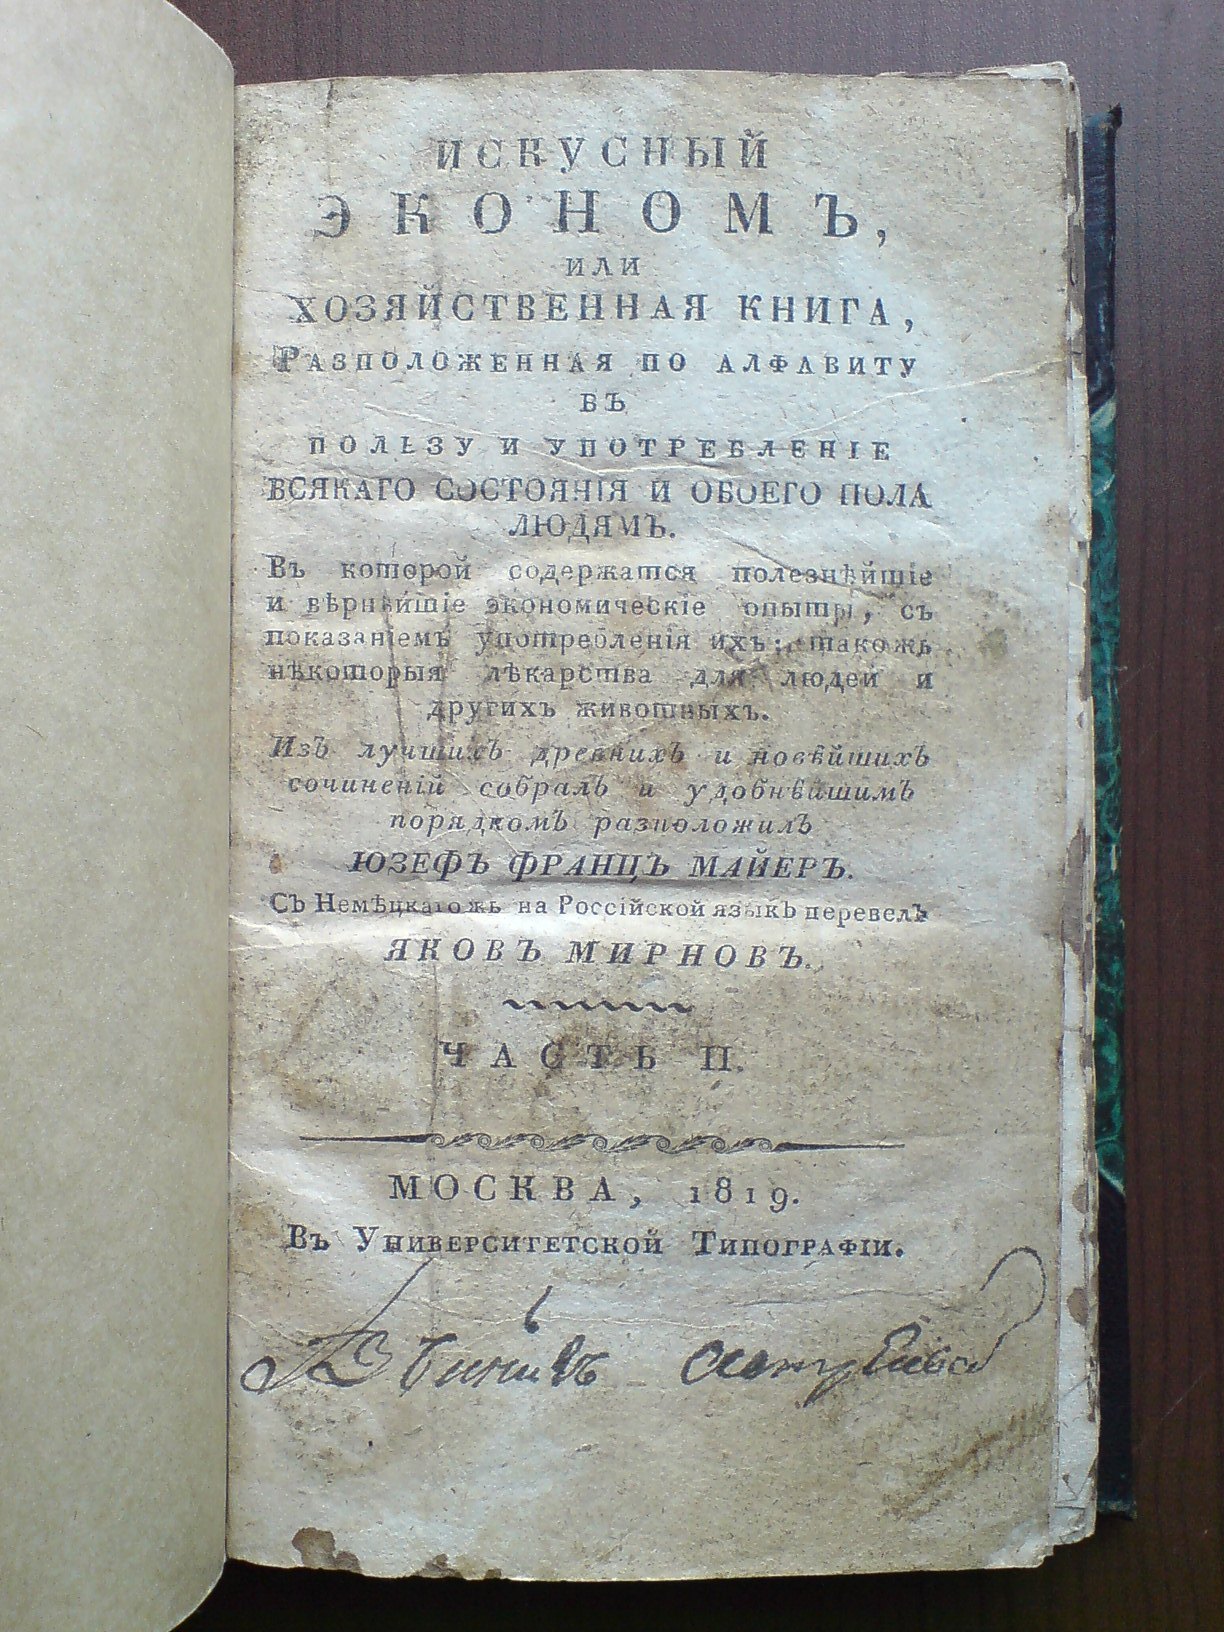 ИСКУСНЫЙ
ЭКОНОМЪ,
ИЛИ
ХОЗЯЙСТВЕННАЯ КНИГА,
РАЗПОЛОЖЕННАЯ ПО АЛФАВИТУ
ВЪ
ПОЛЬЗУ И УПОТРЕБЛЕНІЕ
ВСЯКАГО СОСТОЯНІЯ И ОБОЕГО ПОЛА
ЛЮДЯМЪ.
Въ которой содержатся полезнѣйшіе
и вѣрнѣйшіе экономическіе опыты, съ
показаніемъ употребленія ихъ; такожъ
нѣкоторыя лѣкарства для людей и
другихъ животныхъ.
Изъ лучшихъ древнихъ и новѣйшихъ
сочиненій собралъ и удобнѣйшимъ
порядкомъ разположилъ
ЮЗЕФЪ ФРАНЦЪ МАЙЕРЪ.
Съ Нѣмѣцкагожъ на Россійской языкъ перевелъ
ЯКОВЪ МИРНОВЪ.
ЧАСТЬ II.
МОСКВА, 1819.
ВЪ УНИВЕРСИТЕТСКОЙ ТИПОГРАФІИ.